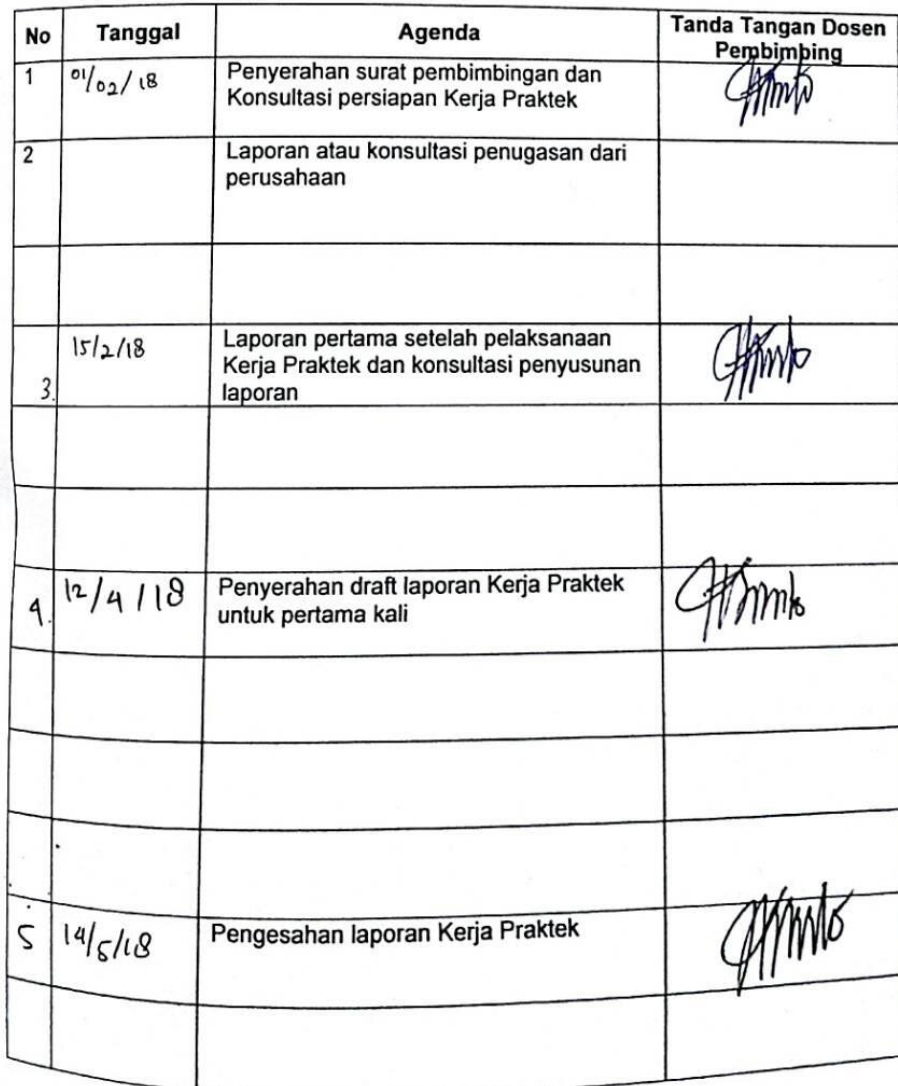 No Tanggal Agenda Tanda Tangan Dosen
Pembimbing
1 01/02/18 Penyerahan surat pembimbingan dan
Konsultasi persiapan Kerja Praktek
2 Laporan atau konsultasi penugasan dari
perusahaan
15/2/18 Laporan pertama setelah pelaksanaan
Kerja Praktek dan konsultasi penyusunan
3. laporan
4. 12/4/18 Penyerahan draft laporan Kerja Praktek
untuk pertama kali
5 14/5/18 Pengesahan laporan Kerja Praktek